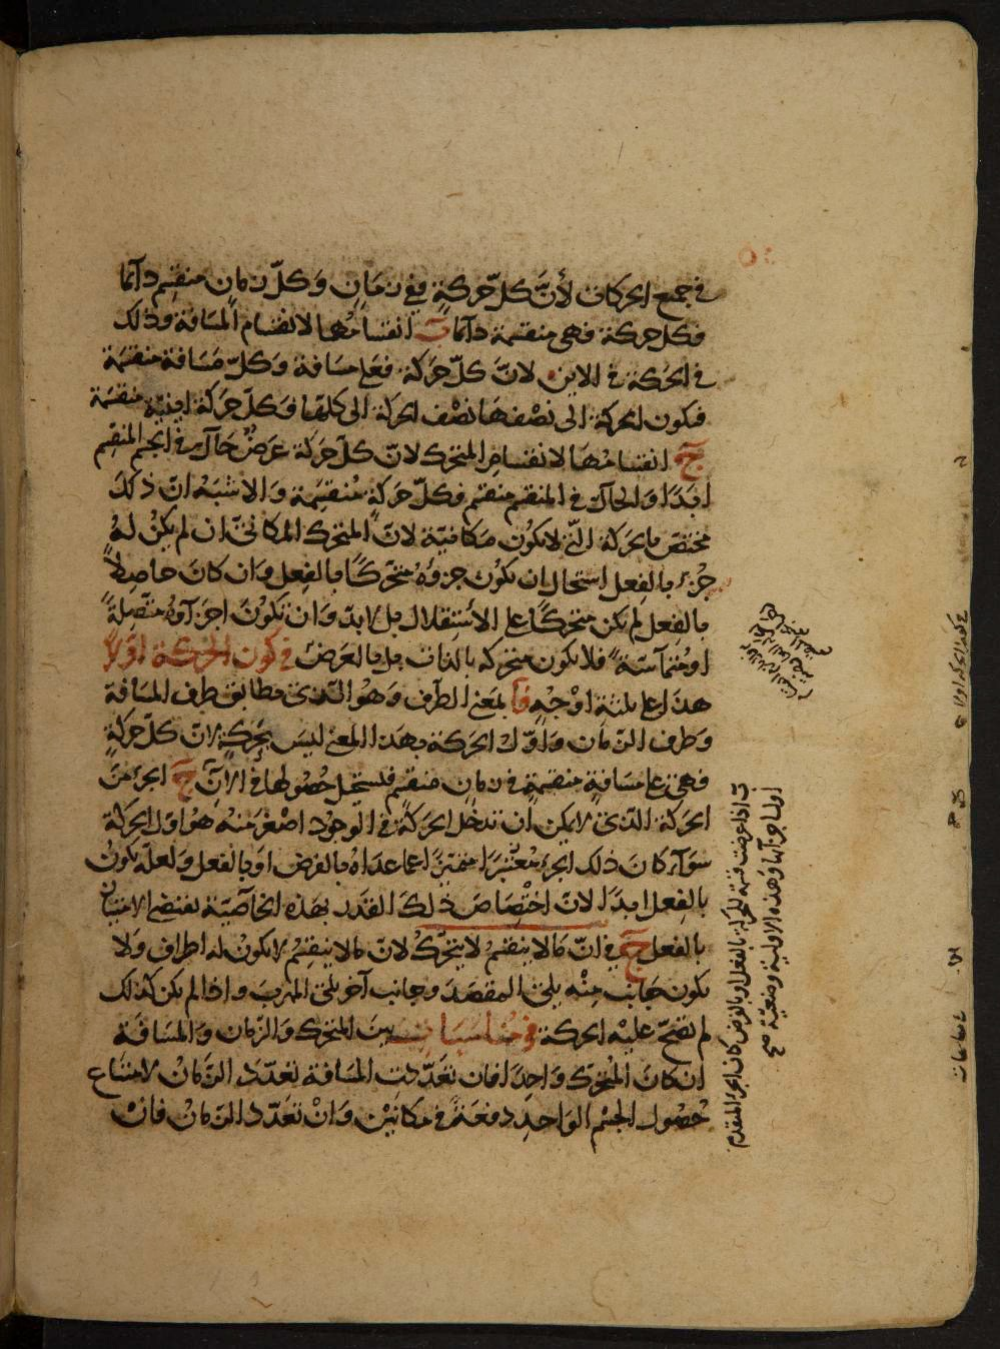 في جميع الحركات لأنّ كلّ حركةٍ في زمانٍ وكلّ زمان منقسم دائما
فكل حركة فهى منقسمة دائما ب انقسامُها لانقسام المسافة وذلك
في الحركة في الاين لانّ كلّ حركة فعلى مسافة وكلّ مسافة منقسمة
فيكون الحركة الى نصفها نصف الحركة الى كلها فكلّ حركة اينيّة منقسمة
ج انقسامُها لانقسام المتحرك لانّ كلّ حركة عرضٌ حالٌ في الجسم المنقسم
ابدًا والحالّ في المنقسم منقسم فكلّ حركةٍ منقسمة والاشبه انّ ذلك
مختص بالحركة التى لا يكون مكانيّة لانّ المتحرك المكانىّ ان لم يكن له
جزء بالفعل استحال ان يكون جزؤه متحركًا بالفعل وان كان حاصلاً
بالفعل لم يكن متحركًا على الاستقلال بل لا بدّ وان يكون اجزآؤه متّصلةً
او متماسّة فلا يكون متحركه بالذات بل بالعرض في كون الحركة اوّلا
هذا على ثلثة اوجهٍ آ بمعنى الطرف وهو الّذى مطابق طرف المسافة
وطرف الزمان واوّل الحركة بهذا المعنى ليس بحركةٍ لانّ كلّ حركةٍ
فهى على مسافةٍ منقسمةٍ في زمان منقسم فيستحيل حصولها في الآن ج الجزء من
الحركة الّذى لا يمكن ان تدخل الحركة في الوجود اصغر منه هو اول الحركة
سوآء كان ذلك الجزء معتبرًا متميّزًا عما عداه بالفرض او بالفعل ولعلّه يكون
بالفعل ابدًا لانّ اختصاص ذلك القدر بهذه الخاصّية يقتضى الامتياز
بالفعل ج في انّ ما لا ينقسم لا يتحرّك لانّ ما لا ينقسم لا يكون له اطراف ولا
يكون جانب منه يلى المقصد وجانب آخر يلى المهرب واذا لم يكن كذلك
لم تصحّ عليه الحركة في مناسبات بين المتحرك والزمان والمسافة
ان كان المتحرك واحدًا فان تعدّدت المسافة تعدّد الزمان لامتناع
حصول الجسم الواحد دفعةً في مكانين وان تعدّد الزمان فان
ب اذا عرضت قسمة للحركة بالفعل او بالفرض كان الجزء المتقدم
اول اجزآئها وهذه الاولية وضعيّة صح